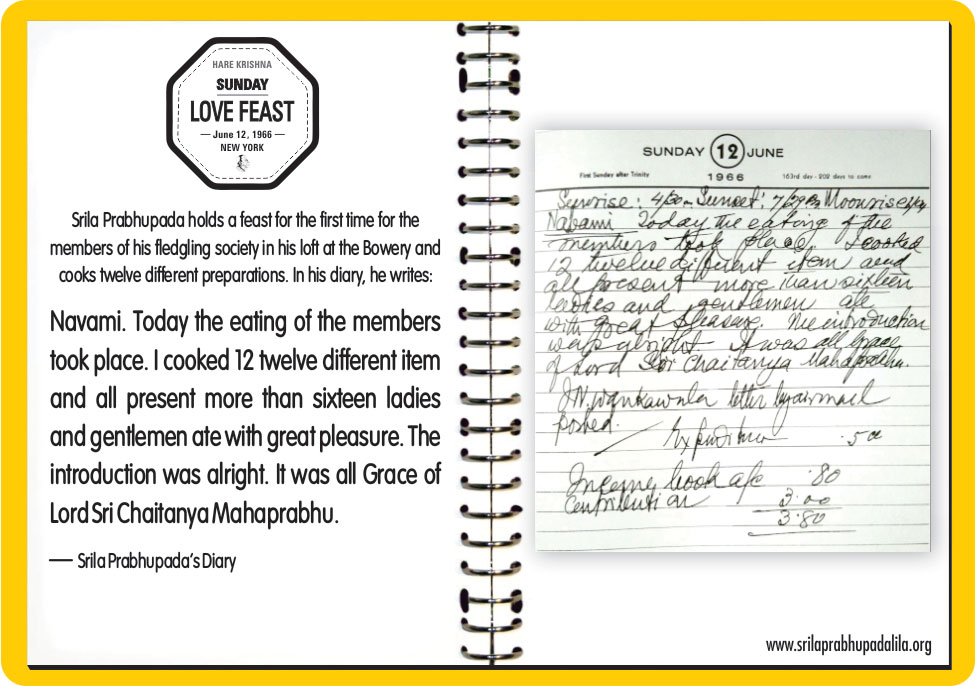 HARE KRISHNA
SUNDAY
LOVE FEAST
June 12, 1966
NEW YORK
Srila Prabhupada holds a feast for the first time for the
members of his fledgling society in his loft at the Bowery and
cooks twelve different preparations. In his diary, he writes:
Navami. Today the eating of the members
took place. I cooked 12 twelve different item
and all present more than sixteen ladies
and gentlemen ate with great pleasure. The
introduction was alright. It was all Grace of
Lord Sri Chaitanya Mahaprabhu.
— Srila Prabhupada's Diary
SUNDAY 12 JUNE
First Sunday after Trinity 1966 163rd day - 202 days to come
Sunrise: Sunset: Moonrise
Nabami Today the eating of the
members took place. I cooked
12 twelve different item and
all present more than sixteen
ladies and gentlemen ate
with great pleasure. The introduction
was alright it was all grace
of Lord Sri Chaitanya Mahaprabhu.
letter by airmail
posted.
Expenditure .50
Income book a/c .80
Contribution 3.00
3.80
www.srilaprabhupadalila.org